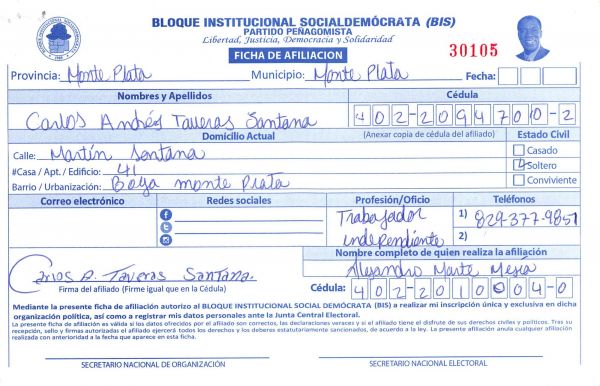 BLOQUE INSTITUCIONAL SOCIALDEMÓCRATA (BIS)
PARTIDO PEÑAGOMISTA
Libertad, Justicia, Democracia y Solidaridad
FICHA DE AFILIACION
30105
Provincia: Monte Plata Municipio: Monte Plata Fecha:
Nombres y Apellidos Cédula
Carlos Andrés Taveras Santana 402-2094701-2
Domicilio Actual (Anexar copia de cédula del afiliado) Estado Civil
Calle: Martín Santana Casado
#Casa / Apt. / Edificio: 41 Soltero
Barrio / Urbanización: Boya monte Plata Conviviente
Correo electrónico Redes sociales Profesión/Oficio Teléfonos
Trabajador 1) 829-377-9851
independiente 2)
Nombre completo de quien realiza la afiliación
Carlos A. Taveras Santana. Alejandro Marte Mejía
Firma del afiliado (Firme igual que en la Cédula) Cédula: 402-2010004-0
Mediante la presente ficha de afiliación autorizo al BLOQUE INSTITUCIONAL SOCIAL DEMÓCRATA (BIS) a realizar mi inscripción única y exclusiva en dicha
organización política, así como a registrar mis datos personales ante la Junta Central Electoral.
La presente ficha de afiliación es válida si los datos ofrecidos por el afiliado son correctos, las declaraciones veraces y si el afiliado tiene el disfrute de sus derechos civiles y políticos. Tras su
recepción, sello y firmas autorizadas el afiliado ejercerá todos los derechos y los deberes estatutariamente sancionados, de acuerdo a la ley. La presente afiliación anula cualquier afiliación
realizada con anterioridad a la fecha que aparece en esta ficha.
SECRETARIO NACIONAL DE ORGANIZACIÓN SECRETARIO NACIONAL ELECTORAL